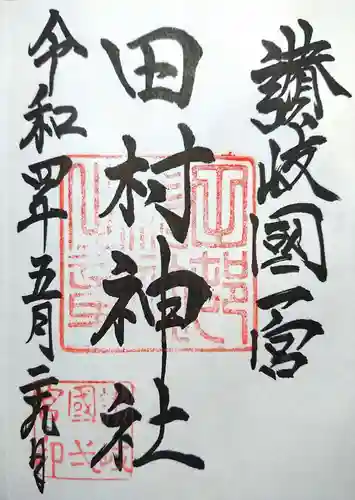 讃岐國一宮
田村神社
令和四年五月二九日